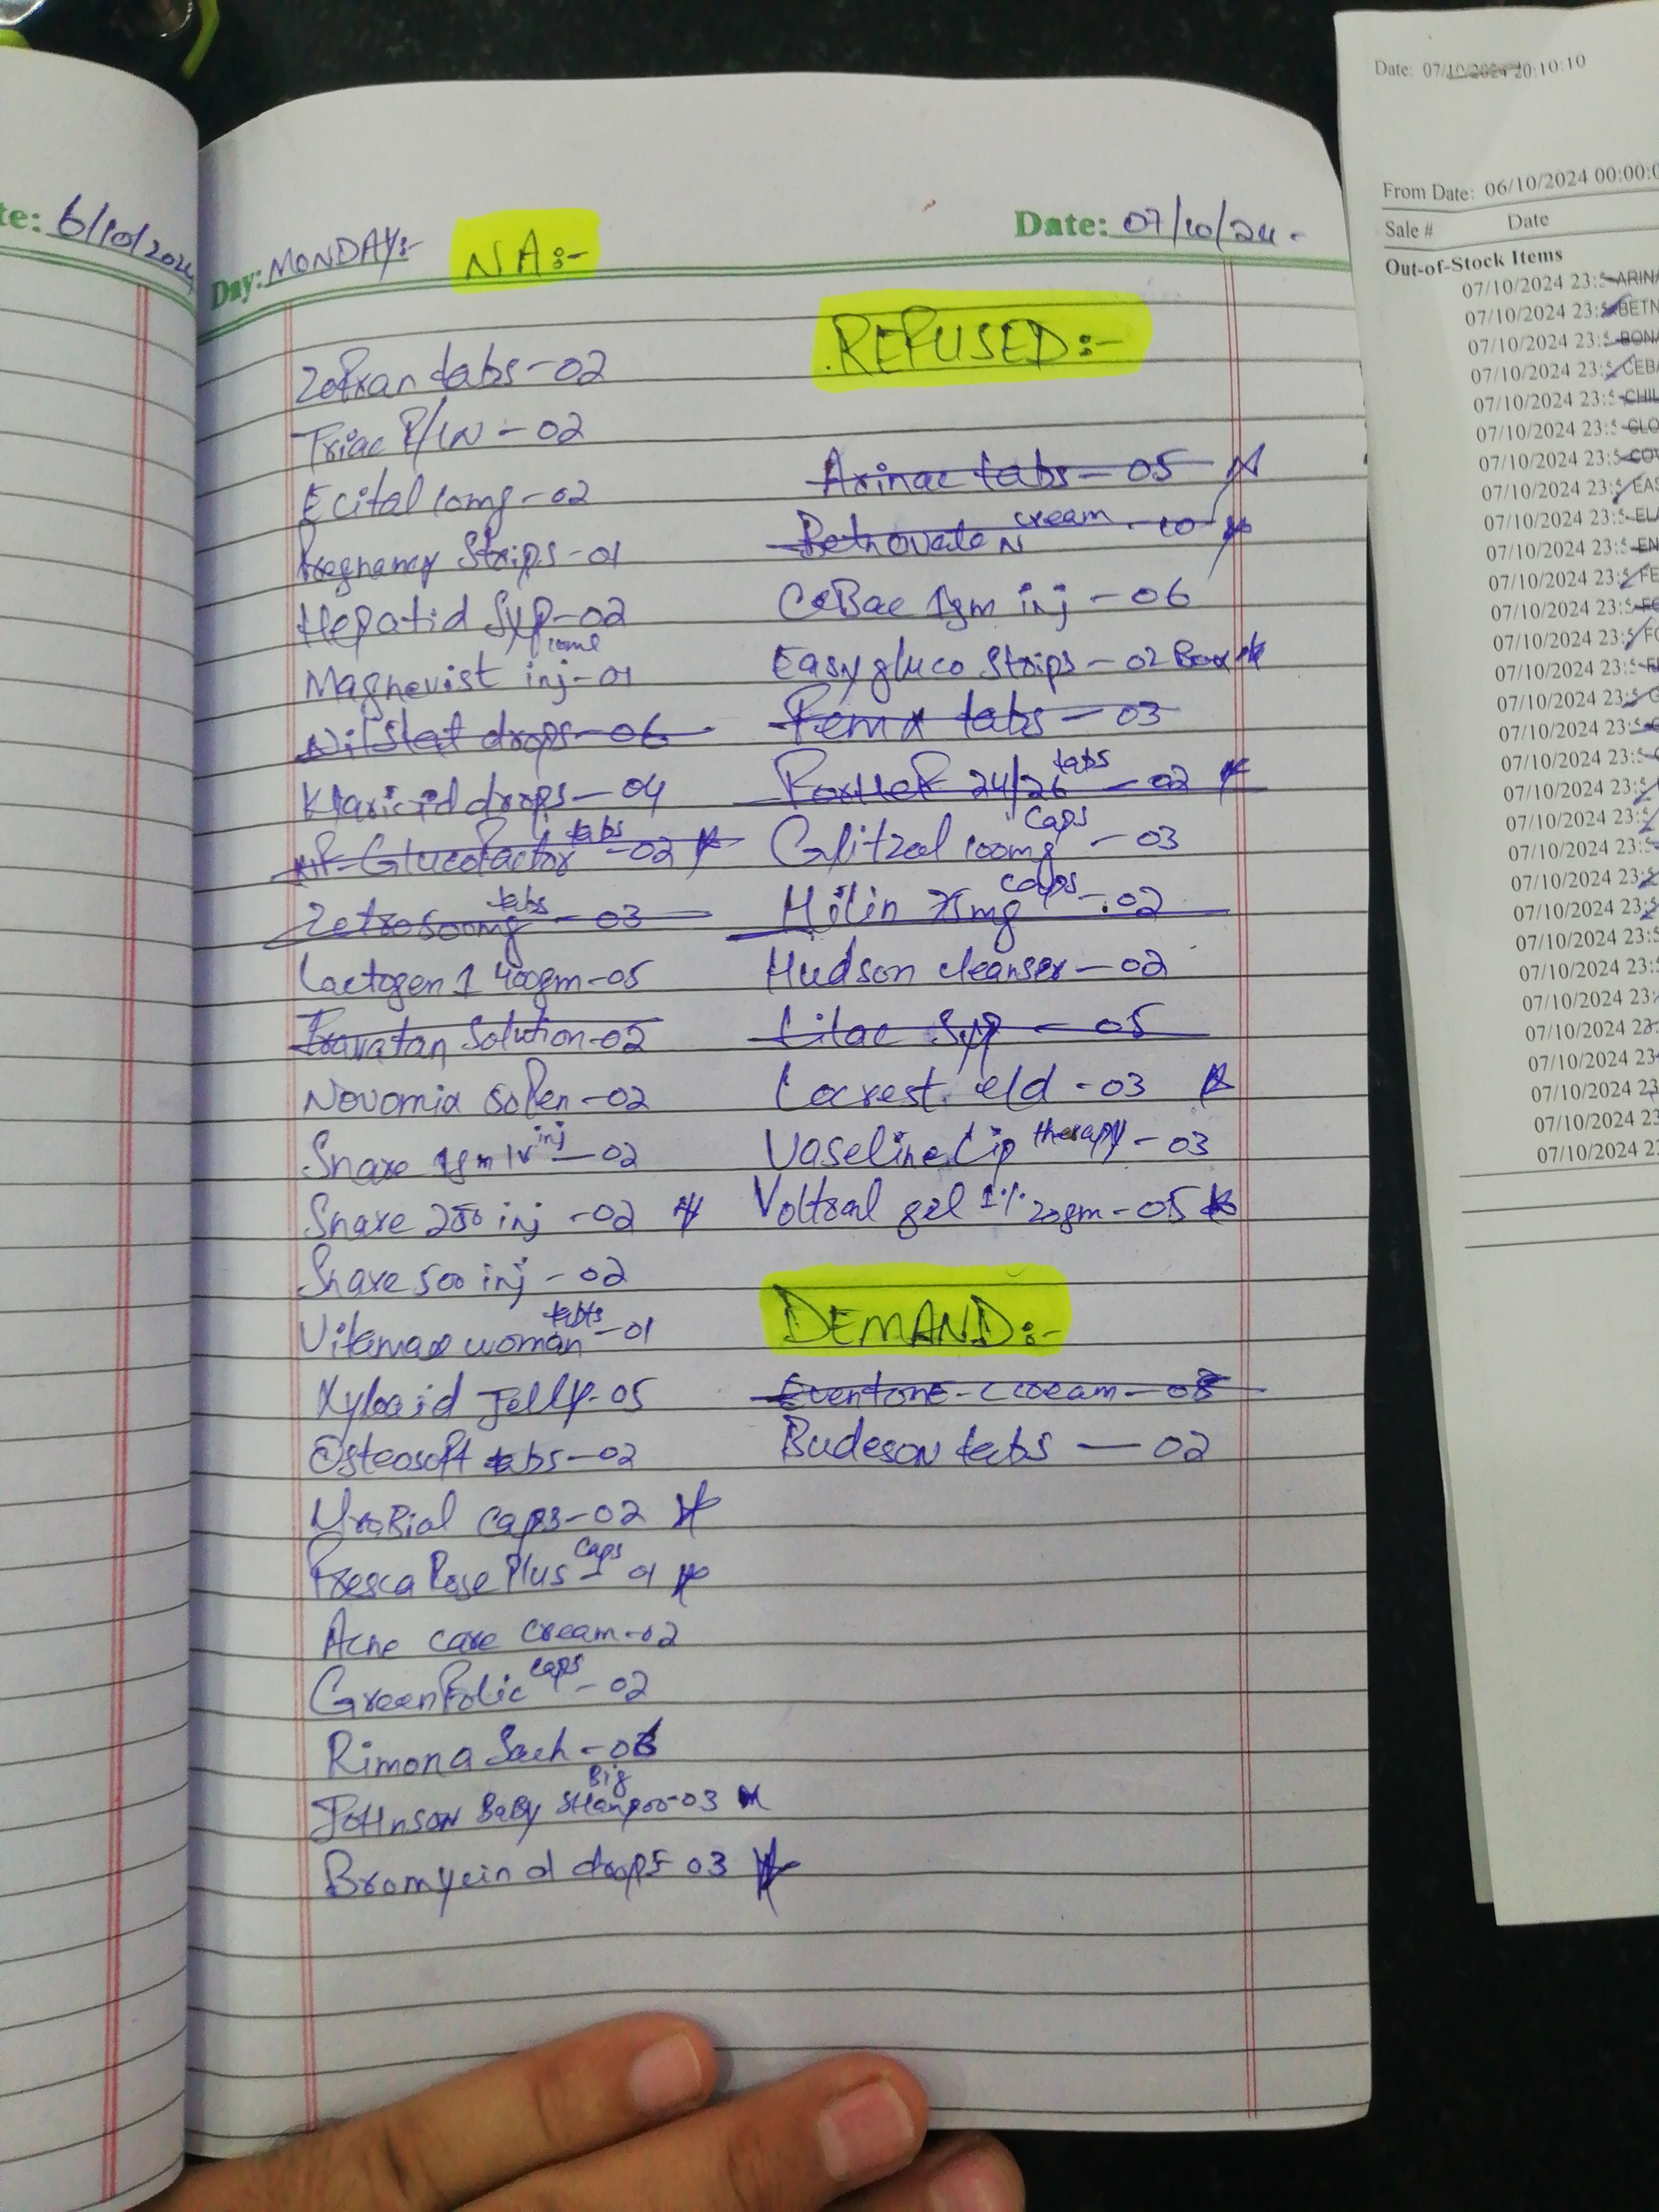 te: 6/10/2024
Day: MONDAY:- NA:-
Date: 07/10/24.
Zofran tabs-02
Triac P/IN-02
Ecital 10mg-02
Pregnancy Strips-01
Hepatid Syp-02
Magnevist 10ml inj-01
Nilstat drops-06
Klaricid drops-04
Glucofactor tabs-02
Zetro 500mg tabs-03
Lactogen 1 400gm-05
Travatan Solution-02
Novomix 50 Pen-02
Snare 1gm IV inj-02
Snare 250 inj-02
Snare 500 inj-02
Vitamax woman tabts-01
Xyloaid Jelly-05
Osteosoft tabs-02
UroBial caps-02
Fresca Rose Plus caps-01
Acne care cream-02
GreenFolic caps-02
Rimona Sach-
Johnson Baby Shampoo Big-03
Bromycin d drops-03
REFUSED:-
Arinac tabs-05
Betnovate N cream-10
CeBac 1gm inj-06
Easygluco Strips-02 Box
Femx tabs-03
24/26 tabs-02
Glitzal 100mg caps-03
Hilin 75mg caps-02
Hudson cleanser-02
Lilac Syp-05
Locrest e/d-03
Vaseline Lip therapy-03
Voltral gel 1% 20gm-05
DEMAND:-
Eventone-C cream-
Budeson tabs-02
Date: 07/10/2024 20:10:10
From Date: 06/10/2024 00:00:0
Sale # Date
Out-of-Stock Items
07/10/2024 23:5 ARINA
07/10/2024 23:5 BETN
07/10/2024 23:5 BONA
07/10/2024 23:5 CEBA
07/10/2024 23:5 CHIL
07/10/2024 23:5 CLO
07/10/2024 23:5 COV
07/10/2024 23:5 EAS
07/10/2024 23:5 ELA
07/10/2024 23:5 EN
07/10/2024 23:5 FE
07/10/2024 23:5 FO
07/10/2024 23:5 FO
07/10/2024 23:5
07/10/2024 23:5 G
07/10/2024 23:5
07/10/2024 23:5
07/10/2024 23:5
07/10/2024 23:5
07/10/2024 23:5
07/10/2024 23:5
07/10/2024 23:5
07/10/2024 23:5
07/10/2024 23:
07/10/2024 23:
07/10/2024 23:
07/10/2024 23
07/10/2024 23
07/10/2024 23
07/10/2024 2